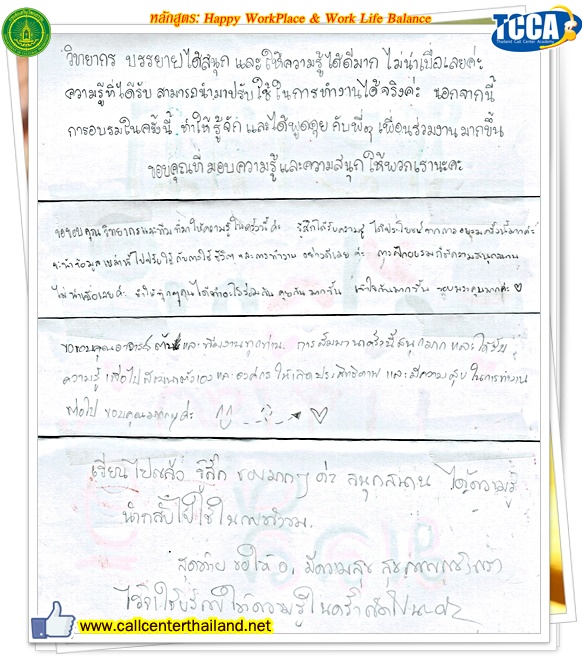 หลักสูตร: Happy WorkPlace & Work Life Balance
TCCA
Thailand Call Center Academy
วิทยากร บรรยายได้สนุก และ ให้ความรู้ได้ดีมาก ไม่น่าเบื่อเลยค่ะ
ความรู้ที่ได้รับ สามารถนำมาปรับใช้ในการทำงานได้จริงค่ะ นอกจากนี้
การอบรมในครั้งนี้ ทำให้รู้จัก และได้พูดคุย กับพี่ๆ เพื่อนร่วมงาน มากขึ้น
ขอบคุณที่มอบความรู้และความสนุก ให้พวกเรานะคะ
ขอขอบคุณ วิทยากรและทีม ที่มาให้ความรู้ในครั้งนี้ค่ะ รู้สึกได้รับความรู้ ได้ประโยชน์จากการอบรมครั้งนี้มากค่ะ
จะนำข้อมูลเหล่านี้ไปปรับใช้ กับการใช้ชีวิต และการทำงาน อย่างดีเลยค่ะ
ไม่น่าเบื่อเลยค่ะ ทำให้ทุกๆคนได้ คุยกันมากขึ้น เข้าใจกันมากขึ้น ขอบพระคุณมากค่ะ ♡
ขอขอบคุณอาจารย์ และทีมงานทุกท่าน การสัมมนาครั้งนี้สนุกมาก และได้รับ
ความรู้ เพื่อไปพัฒนาตัวเองและองค์กร ให้เกิดประสิทธิภาพ และมีความสุขในการทำงาน
ต่อไป ขอบคุณมากๆค่ะ ♡
เรียนไปแล้ว รู้สึก ชอบมากๆ ค่ะ สนุกสนาน ได้ความรู้
นำกลับไปใช้ใน
สุดท้าย ขอให้ อ. มีความสุข
ให้ความรู้ในครั้งต่อไปนะคะ
www.callcenterthailand.net